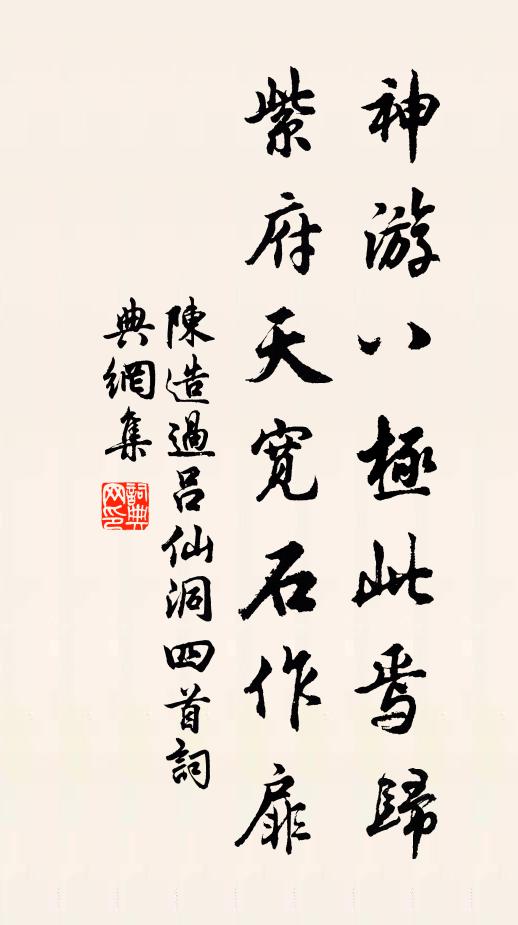 神游八極此焉歸
紫府天寬石作扉
陳造過呂仙洞四首詞
典網集
詞典網印